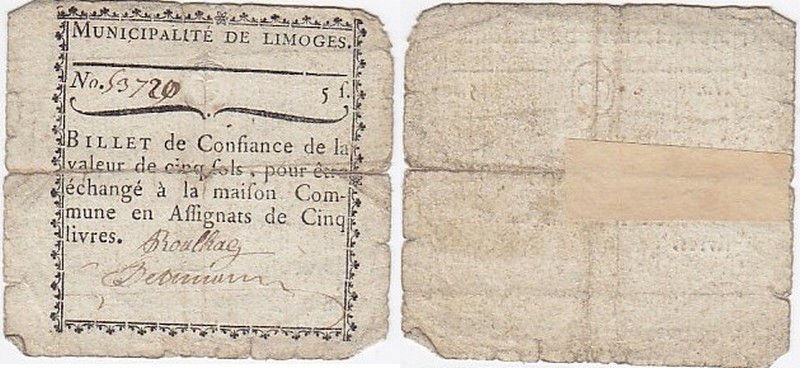 MUNICIPALITÉ DE LIMOGES.
No. 53720 5 ſ.
BILLET de Confiance de la
valeur de cinq ſols, pour être
échangé à la maiſon Com-
mune en Aſſignats de Cinq
livres. Roulhac